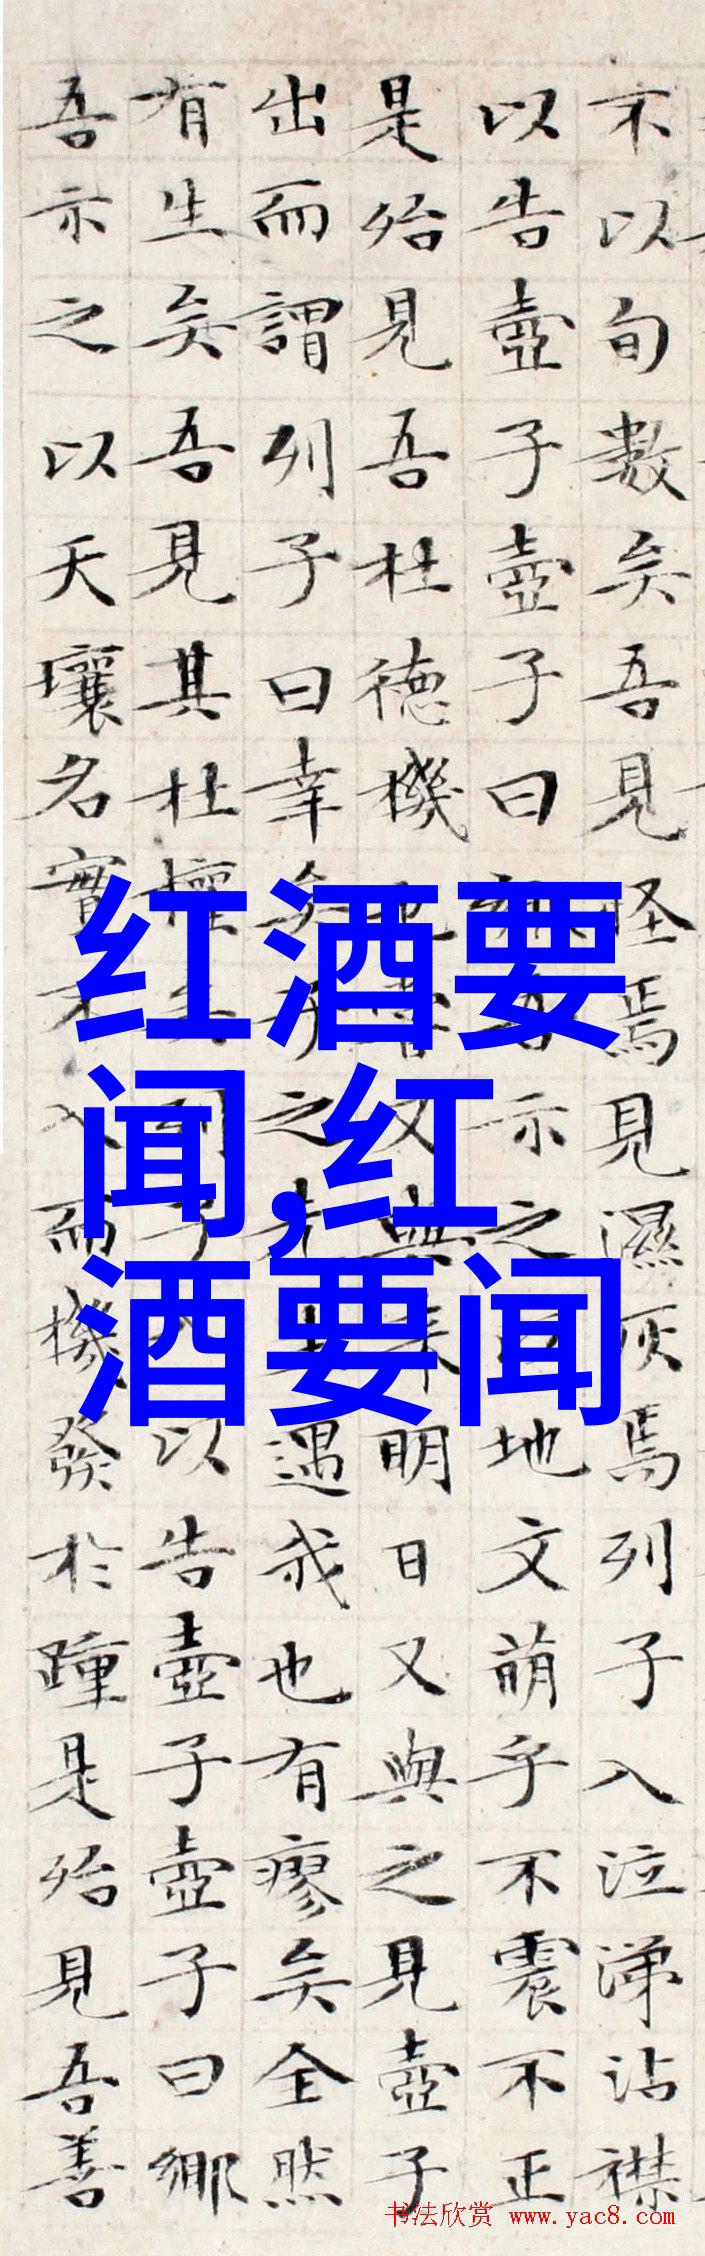 不以旬數矣吾見怪焉見濕灰焉列子入泣涕沾襟
以告壺子壺子曰鄉吾示之以地文萌乎不震不正
是殆見吾杜德機也嘗又與來明日又與之見壺子
出而謂列子曰幸矣子之先生遇我也有瘳矣全然
有生矣吾見其杜權矣列子入以告壺子壺子曰鄉
吾示之以天壤名實不入而機發於踵是殆見吾善
红酒要
闻,红
酒要闻
书法欣赏 www.yac8.com